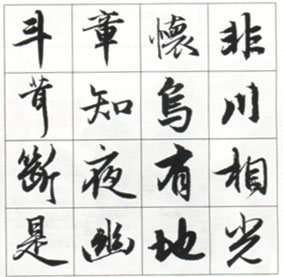 斗章懷非
知烏川
斷夜有相
是幽地光